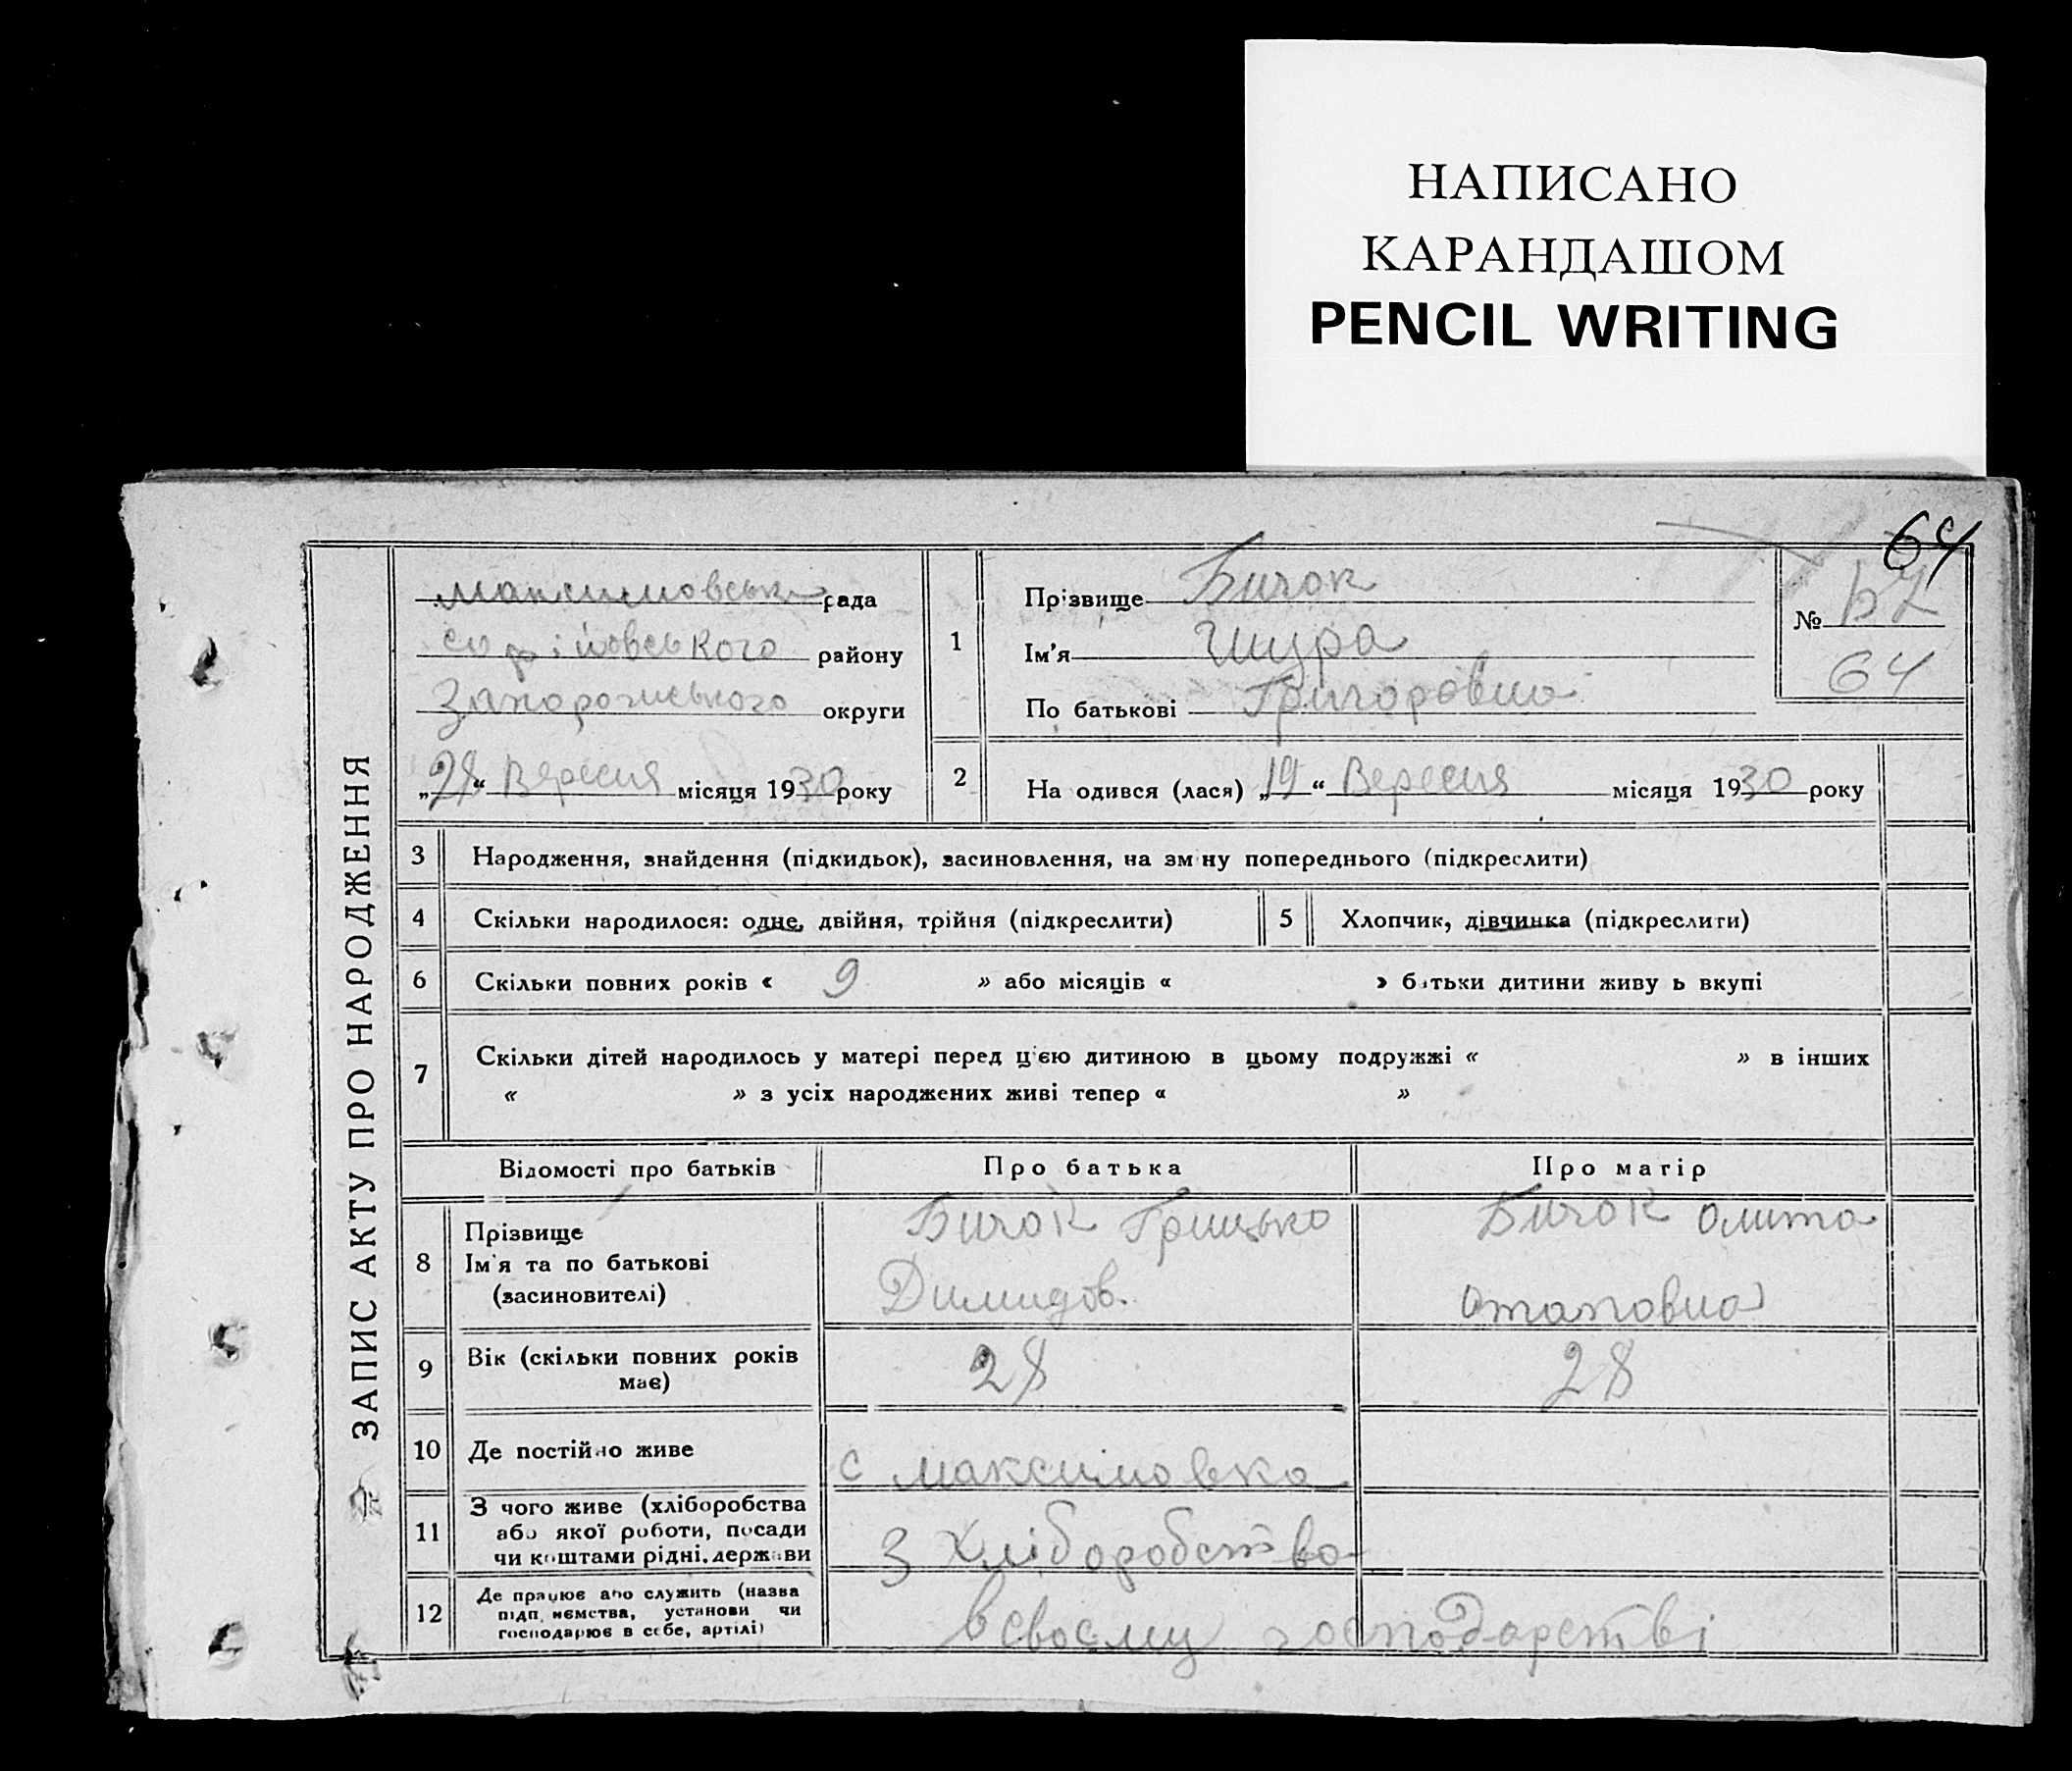 НАПИСАНО
КАРАНДАШОМ
PENCIL WRITING
64
ЗАПИС АКТУ ПРО НАРОДЖЕННЯ
Максимовська рада
Софіїовського району
Запорожського округи
„28“ Вересня місяця 1930 року
1
Прізвище Бичок
Ім'я Шура
По батькові Григоровна
№
64
2
На одився (лася) „19“ Вересня місяця 1930 року
3 Народження, знайдення (підкидьок), засиновлення, на зміну попереднього (підкреслити)
4 Скільки народилося: одне, двійня, трійня (підкреслити)
5 Хлопчик, дівчинка (підкреслити)
6 Скільки повних років « 9 » або місяців « » батьки дитини живу ь вкупі
7 Скільки дітей народилось у матері перед цією дитиною в цьому подружжі « » в інших
« » з усіх народжених живі тепер « »
Відомості про батьків Про батька Про матір
8 Прізвище
Ім'я та по батькові
(засиновителі)
Бичок Грицько
Димидов.
Бичок
Отаповна
9 Вік (скільки повних років
має)
28 28
10 Де постійно живе с Максимовка
11 З чого живе (хліборобства
або якої роботи, посади
чи коштами рідні, держави
З Хліборобства
12 Де працює або служить (назва
підп иємства, установи чи
господарює в себе, артілі)
В своєму господарстві